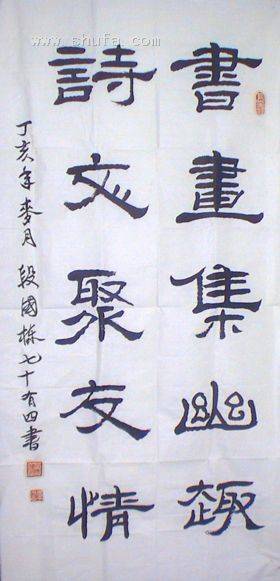 書畫集幽趣
詩文聚友情
丁亥年麥月 段國棟七十有四書
www.shufa.com